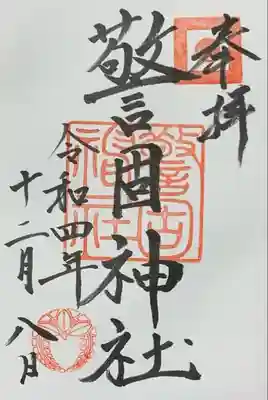 奉拝
警固神社
令和四年
十二月八日